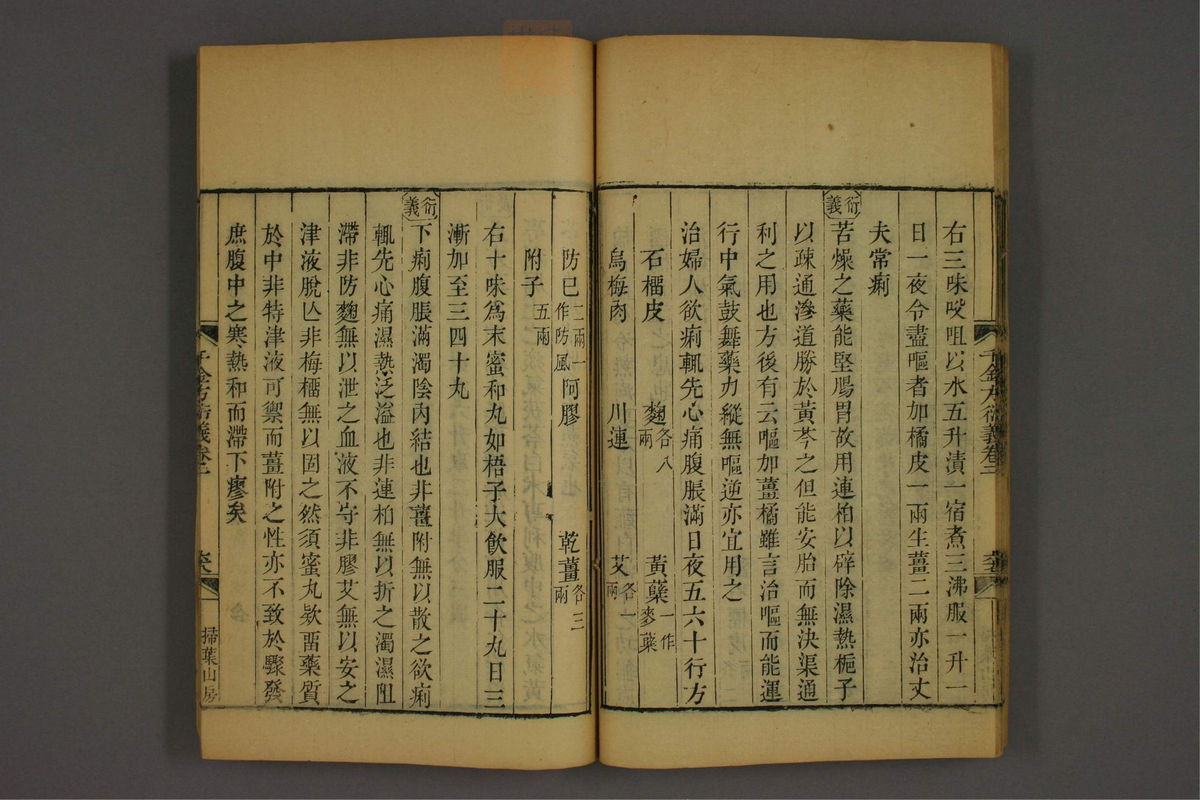 右三味㕮咀以水五升漬一宿煮三沸服一升一
日一夜令盡嘔者加橘皮一兩生薑二兩亦治丈
夫常痢
衍義
苦燥之藥能堅腸胃故用連柏以辟除濕熱梔子
以疎通滲道勝於黃芩之但能安胎而無決渠通
利之用也方後有云嘔加薑橘雖言治嘔而能運
行中氣鼓舞藥力縱無嘔逆亦宜用之
治婦人欲痢輒先心痛腹脹滿日夜五六十行方
石榴皮 麴各八兩 黃蘗一作麥蘗
烏梅肉 川連 艾各一兩
防已二兩一作防風 阿膠 乾薑各三兩
附子五兩
右十味爲末蜜和丸如梧子大飲服二十丸日三
漸加至三四十丸
衍義
下痢腹脹滿濁陰內結也非薑附無以散之欲痢
輒先心痛濕熱泛溢也非連柏無以折之濁濕阻
滯非防麴無以泄之血液不守非膠艾無以安之
津液脫亾非梅榴無以固之然須蜜丸欵畱藥質
於中非特津液可禦而薑附之性亦不致於驟發
庶腹中之寒熱和而滯下瘳矣
千金方衍義卷三
千金方衍義卷三
掃葉山房